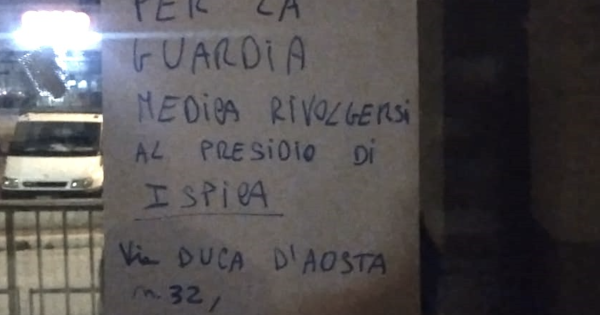 PER LA
GUARDIA
MEDICA RIVOLGERSI
AL PRESIDIO DI
ISPICA
Via DUCA D'AOSTA
n. 32,